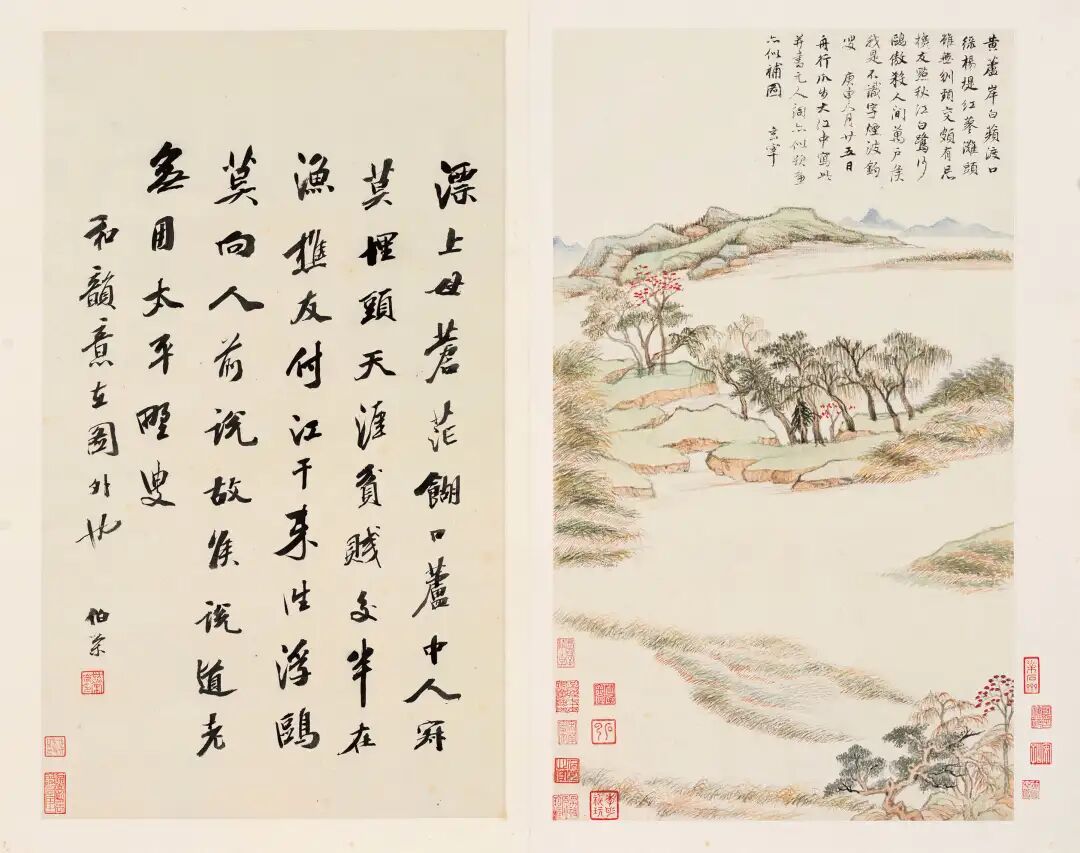 黄蘆岸白蘋渡口
綠楊堤紅蓼灘頭
雖無刎頸交頗有忘
機友點秋江白鷺沙
鷗傲殺人間萬戶侯
我是不識字煙波釣
叟 庚申八月廿五日
舟行瓜步大江中寫此
并書元人詞亦似
亦似補圖 玄宰
漂上母蒼茫餬口蘆中人
莫埋頭天涯貧賤交半在
漁樵友付江干來往浮鷗
莫向人前說故侯說道老
無用太平野叟
和韻意在圖外也
伯榮